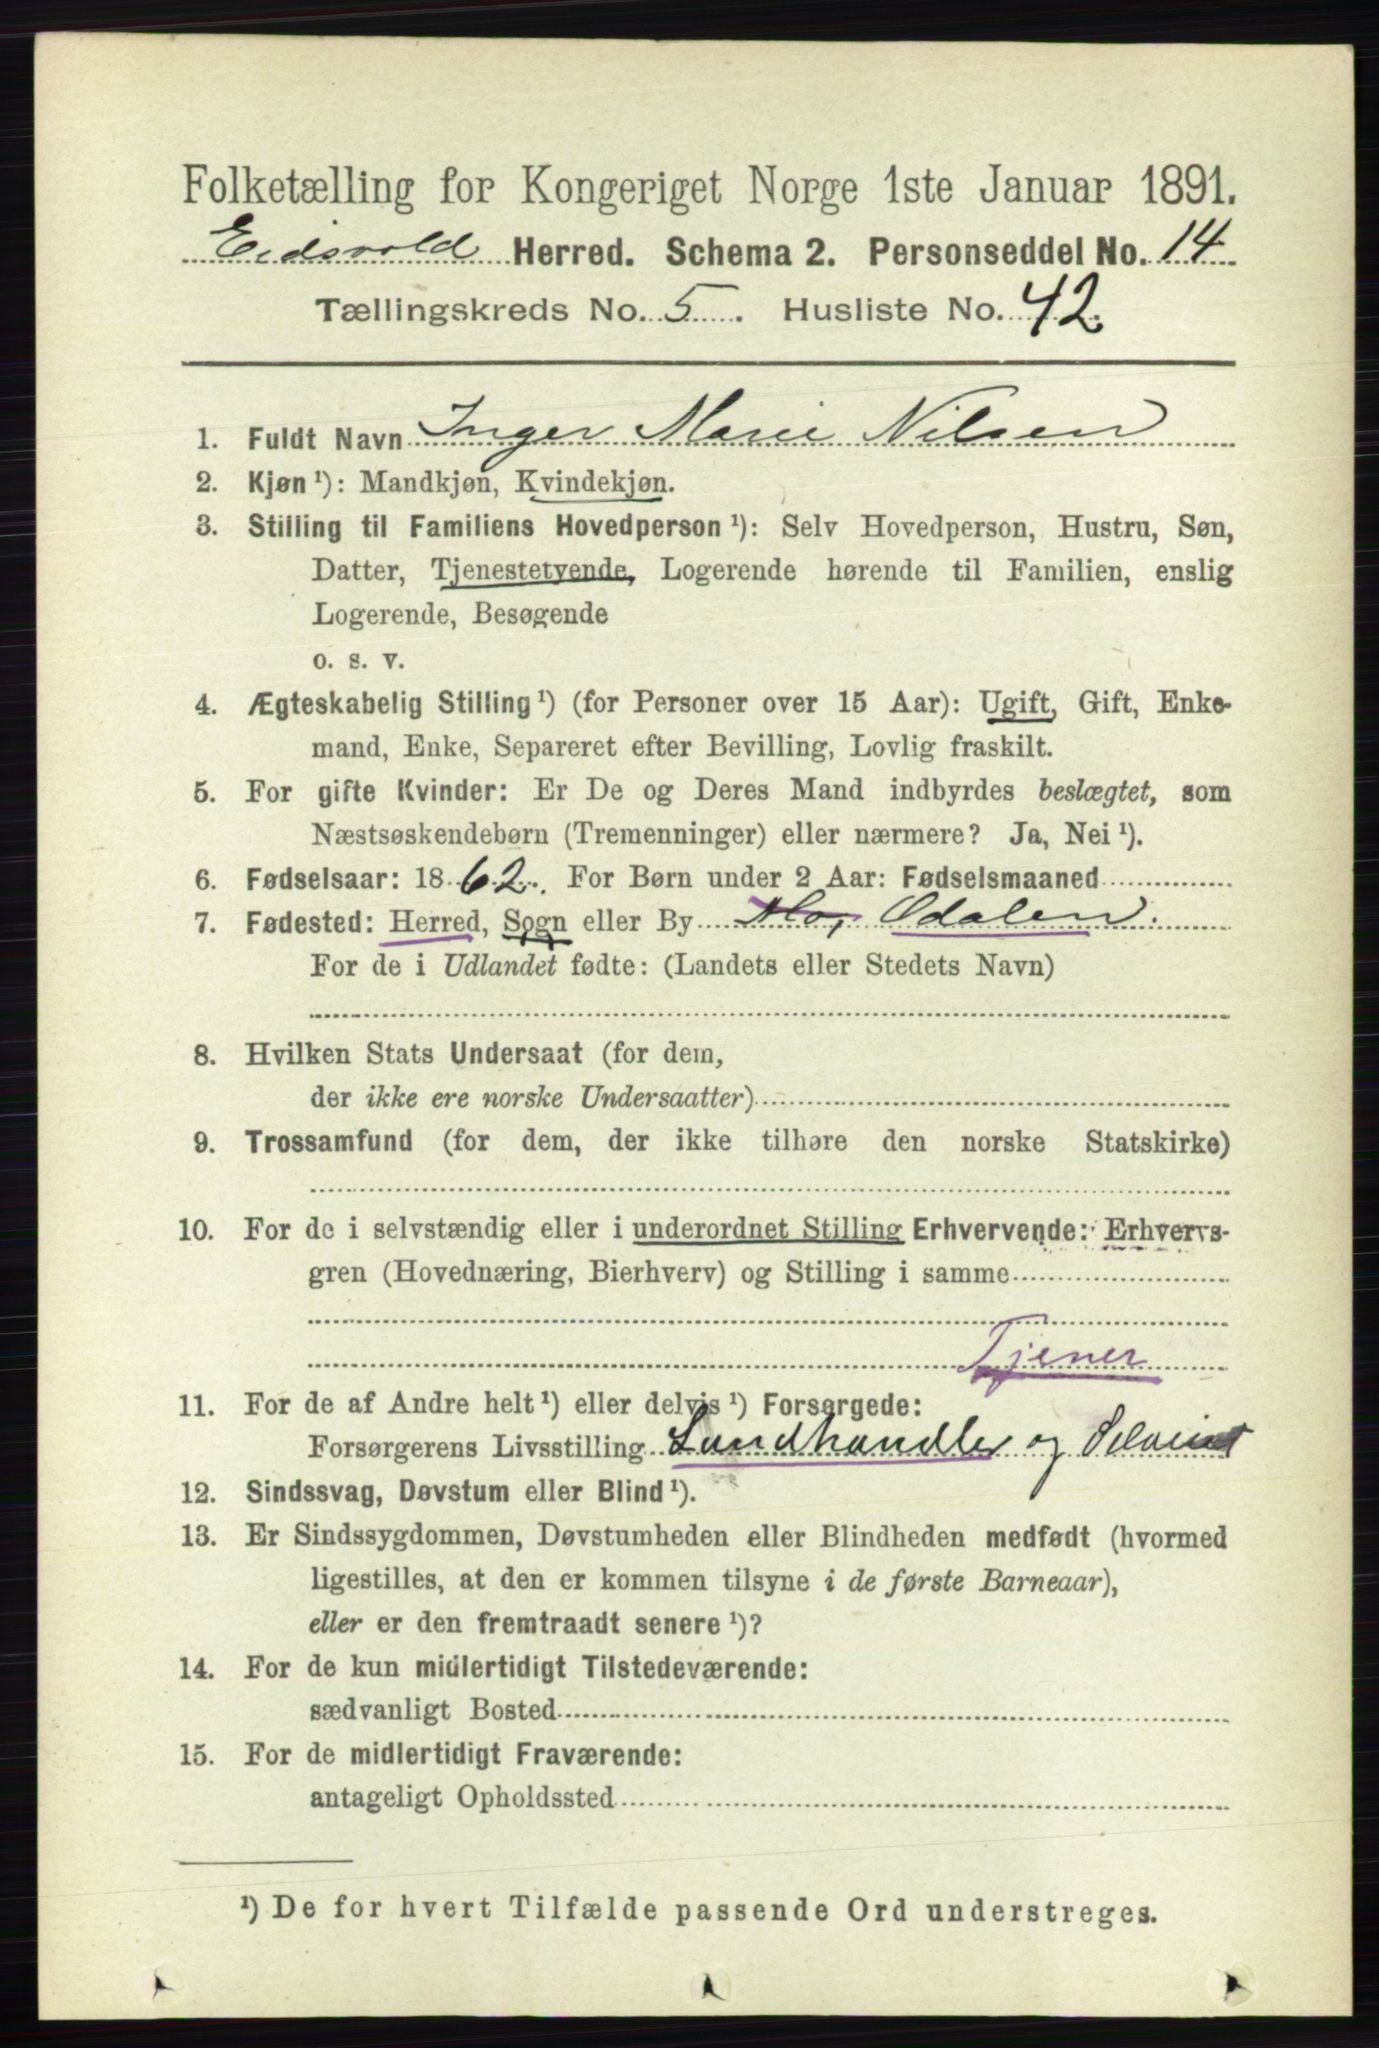 Folketælling for Kongeriget Norge 1ste Januar 1891.
Eidsvold Herred. Schema 2. Personseddel No. 14
Tællingskreds No. 5. Husliste No. 42.
1. Fuldt Navn Inger Marie Nilsen
2. Kjøn ¹): Mandkjøn, Kvindekjøn.
3. Stilling til Familiens Hovedperson ¹): Selv Hovedperson, Hustru, Søn,
Datter, Tjenestetyende, Logerende hørende til Familien, enslig
Logerende, Besøgende
o. s. v.
4. Ægteskabelig Stilling ¹) (for Personer over 15 Aar): Ugift, Gift, Enke-
mand, Enke, Separeret efter Bevilling, Lovlig fraskilt.
5. For gifte Kvinder: Er De og Deres Mand indbyrdes beslægtet, som
Næstsøskendebørn (Tremenninger) eller nærmere? Ja, Nei ¹).
6. Fødselsaar: 1862. For Børn under 2 Aar: Fødselsmaaned
7. Fødested: Herred, Sogn eller By Mo, Odalen.
For de i Udlandet fødte: (Landets eller Stedets Navn)
8. Hvilken Stats Undersaat (for dem,
der ikke ere norske Undersaatter)
9. Trossamfund (for dem, der ikke tilhøre den norske Statskirke)
10. For de i selvstændig eller i underordnet Stilling Erhvervende: Erhvervs-
gren (Hovednæring, Bierhverv) og Stilling i samme
Tjener
11. For de af Andre helt ¹) eller delvis ¹) Forsørgede:
Forsørgerens Livsstilling Landhandler og
12. Sindssvag, Døvstum eller Blind ¹).
13. Er Sindssygdommen, Døvstumheden eller Blindheden medfødt (hvormed
ligestilles, at den er kommen tilsyne i de første Barneaar),
eller er den fremtraadt senere ¹)?
14. For de kun midlertidigt Tilstedeværende:
sædvanligt Bosted
15. For de midlertidigt Fraværende:
antageligt Opholdssted
¹) De for hvert Tilfælde passende Ord understreges.